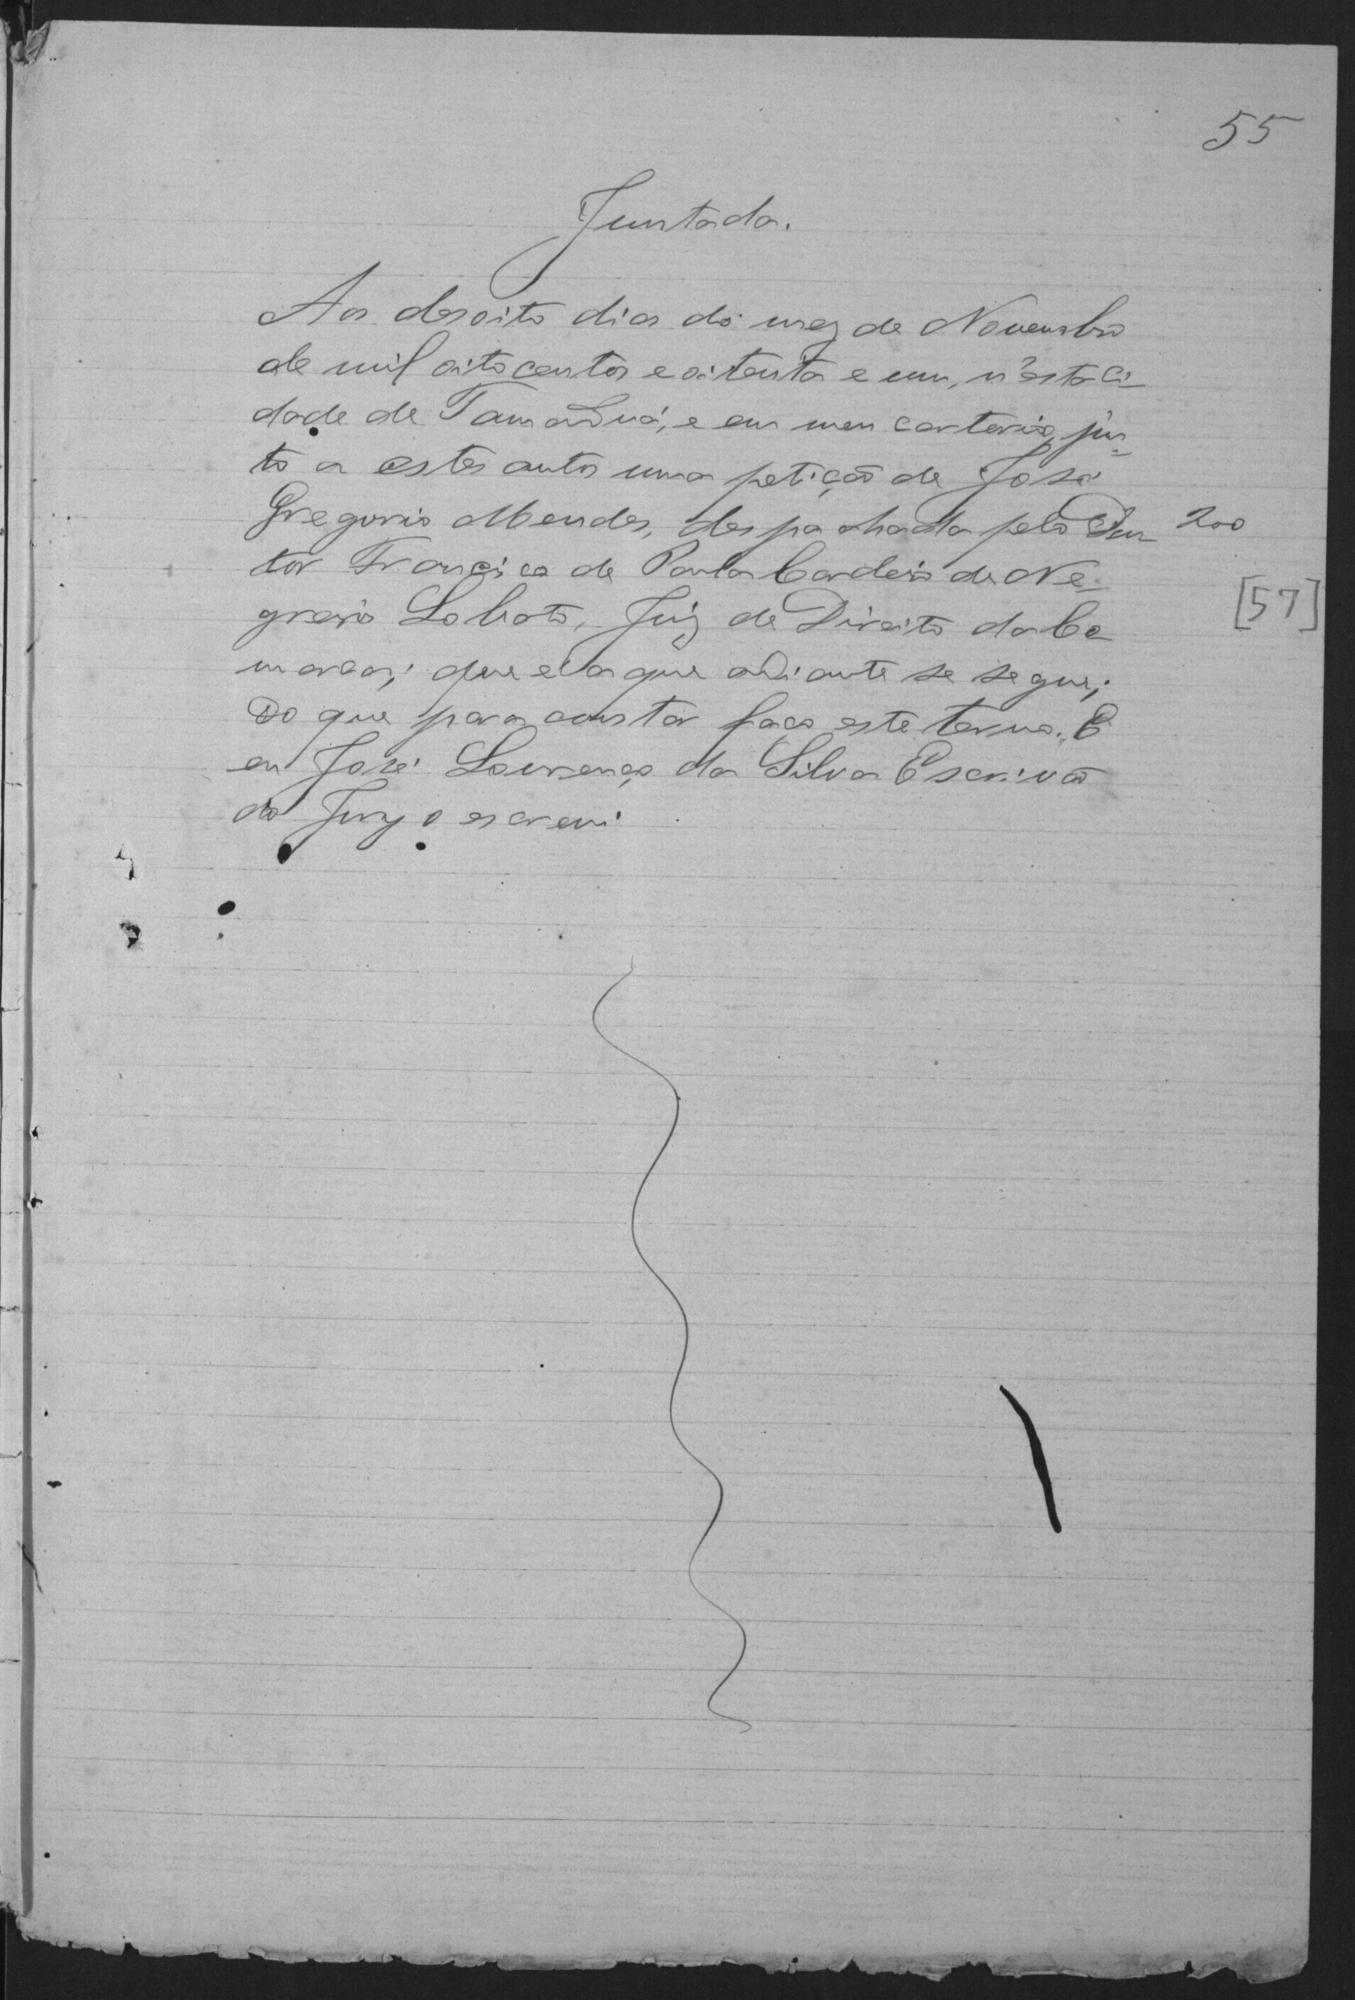 55
Juntada.
Aos desoito dias do mez de Novembro
de mil oitocentos e oitenta e um, n'esta ci-
dade de Tamanduá, e em meu cartorio, jun-
to a estes autos uma petição de José
Gregorio Mendes, despachada pelo Dou- 200
tor Francisco de Paula Cordeiro de Ne-
greiros Lobato, Juiz de Direito da Co-
marca; que é a que adiante se segue;
do que para constar faço este termo. E
eu José Lourenço da Silva Escrivão
do Jury o escrevi
[57]